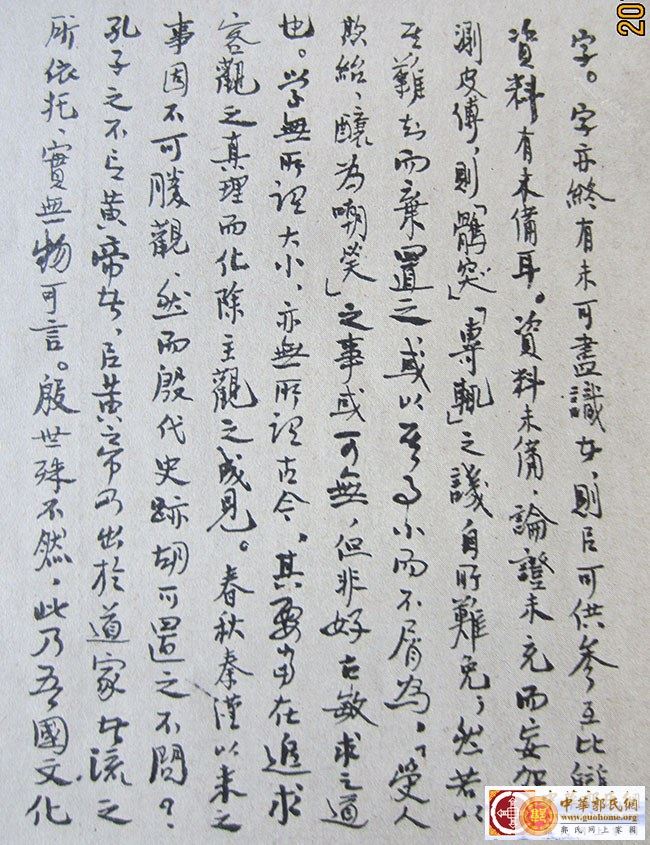 字。字亦終有未可盡識者，則㠯可供參互比
資料有未備耳。資料未備，論證未充而妄加
測皮傅，則「鶻突」「專輒」之譏自所難免，然若以
其難知而棄置之，或以其事小而不屑為，「受人
欺紿、釀為嘲笑」之事或可無，但非好古敏求之道
也。學無所謂大小，亦無所謂古今，其要當在追求
客觀之真理而化除主觀之成見。春秋秦漢以來之
事固不可勝觀，然而殷代史跡胡可置之不問？
孔子之不言黃帝者，㠯黃帝乃出於道家者流之
所依托、實無物可言。殷世殊不然，此乃吾國文化
20
中華郭氏網
www.guohome.org
郭氏網上家園